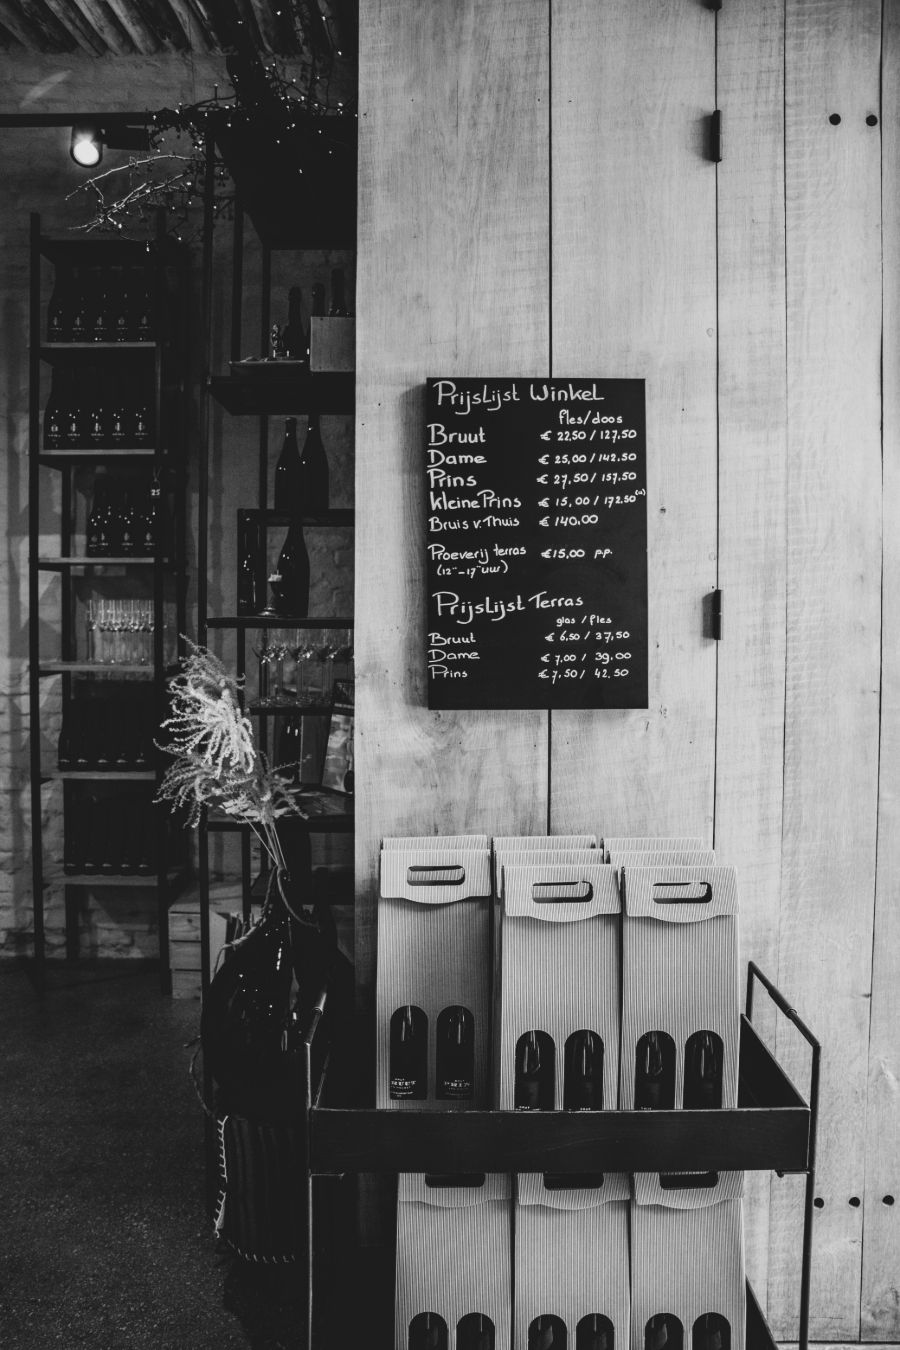 Prijslijst Winkel
fles/doos
Bruut € 22,50 / 127,50
Dame € 25,00 / 142.50
Prins € 27,50 / 157.50
kleine Prins € 15,00 / 172.50
Bruis v. Thuis € 140.00
Proeverij terras €15,00 p.p.
(12⁰⁰-17⁰⁰uur)
Prijslijst Terras
glas / fles
Bruut € 6,50 / 37,50
Dame € 7,00 / 39.00
Prins € 7,50 / 42.50